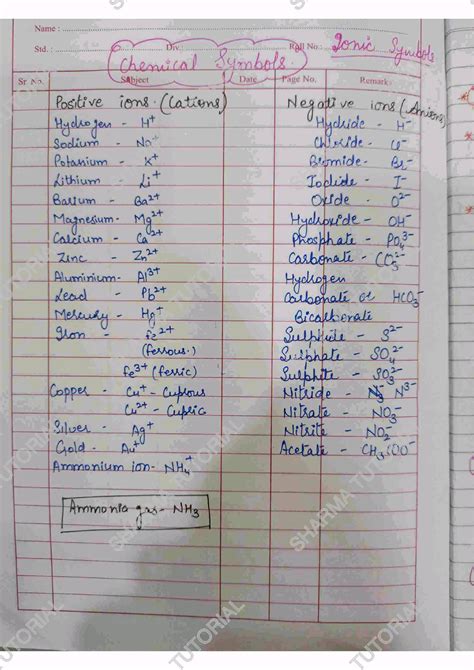 Name :
Std : Div. Roll No. Ionic Symbols
Chemical Symbols.
Sr. No. Subject Date Page No. Remark
Positive ions. (Cations)
Hydrogen - H⁺
Sodium - Na⁺
Potassium - K⁺
Lithium - Li⁺
Barium - Ba²⁺
Magnesium - Mg²⁺
Calcium - Ca²⁺
Zinc - Zn²⁺
Aluminium - Al³⁺
Lead - Pb²⁺
Mercury - Hg⁺
Iron - fe²⁺
(ferrous.)
fe³⁺ (ferric)
Copper - Cu⁺ - Cuprous
Cu²⁺ - Cupric
Silver - Ag⁺
Gold - Au⁺
Ammonium ion - NH₄⁺
Ammonia gas - NH₃
Negative ions (Anions)
Hydride - H⁻
Chloride - Cl⁻
Bromide - Br⁻
Iodide - I⁻
Oxide - O²⁻
Hydroxide - OH⁻
Phosphate - PO₄³⁻
Carbonate - CO₃²⁻
Hydrogen
Carbonate or HCO₃⁻
Bicarbonate
Sulphide - S²⁻
Sulphate - SO₄²⁻
Sulphite - SO₃²⁻
Nitride - N³⁻
Nitrate - NO₃⁻
Nitrite - NO₂⁻
Acetate - CH₃COO⁻
SHARMA TUTORIAL
SHARMA TUTORIAL
TUTORIAL
TUTORIAL
TUTORIAL
TUTORIAL